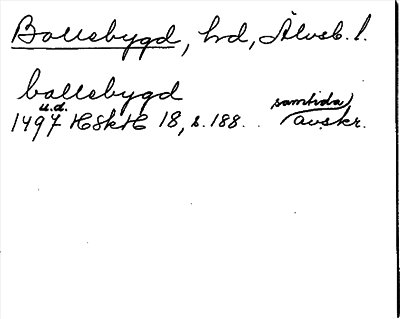 Bollebygd, hd, Älvsb. l.
bollebygd
u.d. samtida
1497 HSkH 18, s. 188. avskr.